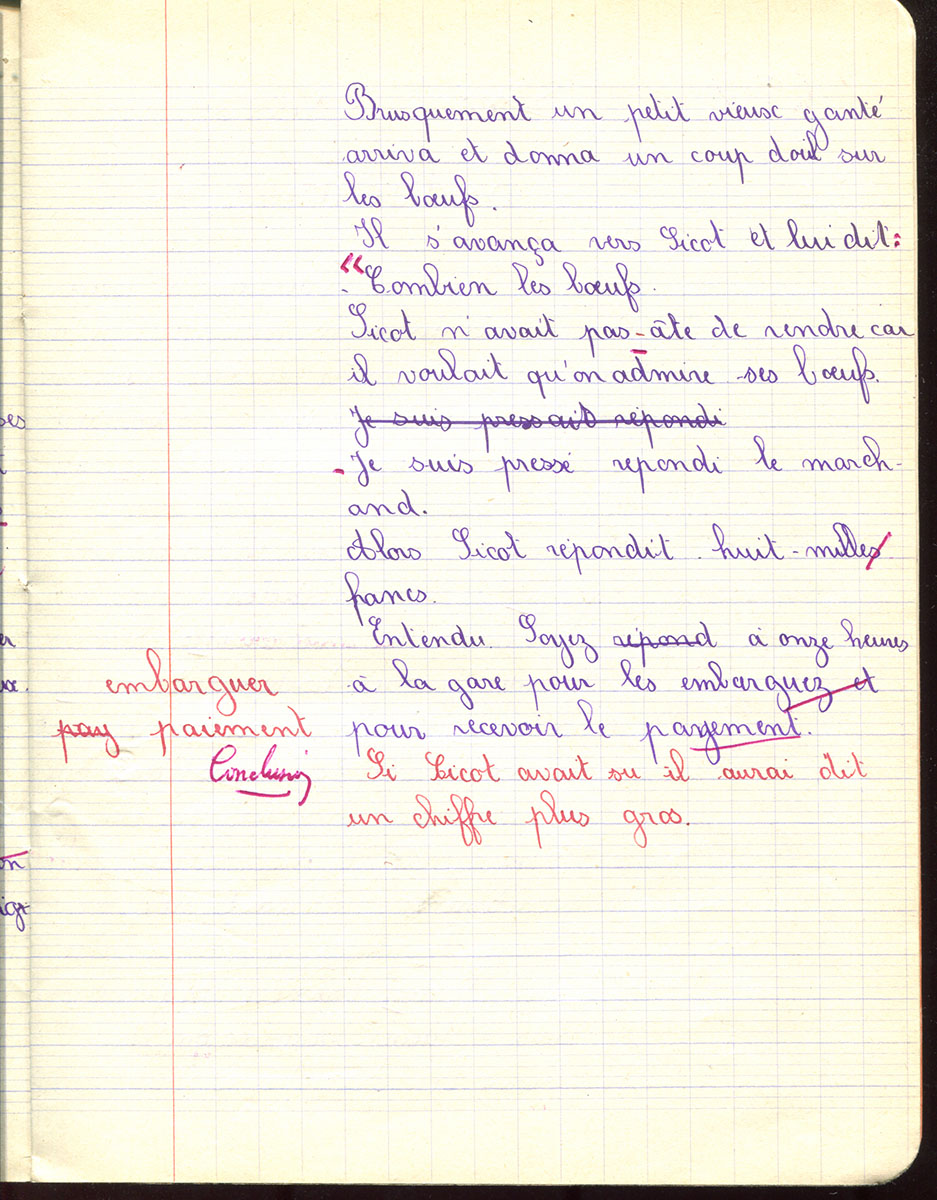 Brusquement un petit vieux ganté
arriva et donna un coup doeil sur
les bœufs.
Il s'avança vers Sicot et lui dit:
"Combien les bœufs.
Sicot n'avait pas-âte de rendre car
il voulait qu'on admire ses bœufs.
Je suis pressait répondi
-Je suis pressé repondi le march-
and.
Alors Sicot répondit. huit-milles
francs.
Entendu. Soyez répond à onze heures
embarquer à la gare pour les embarquez et
pay paiement pour recevoir le payement.
Conclusion Si Sicot avait su il aurai dit
un chiffre plus gros.